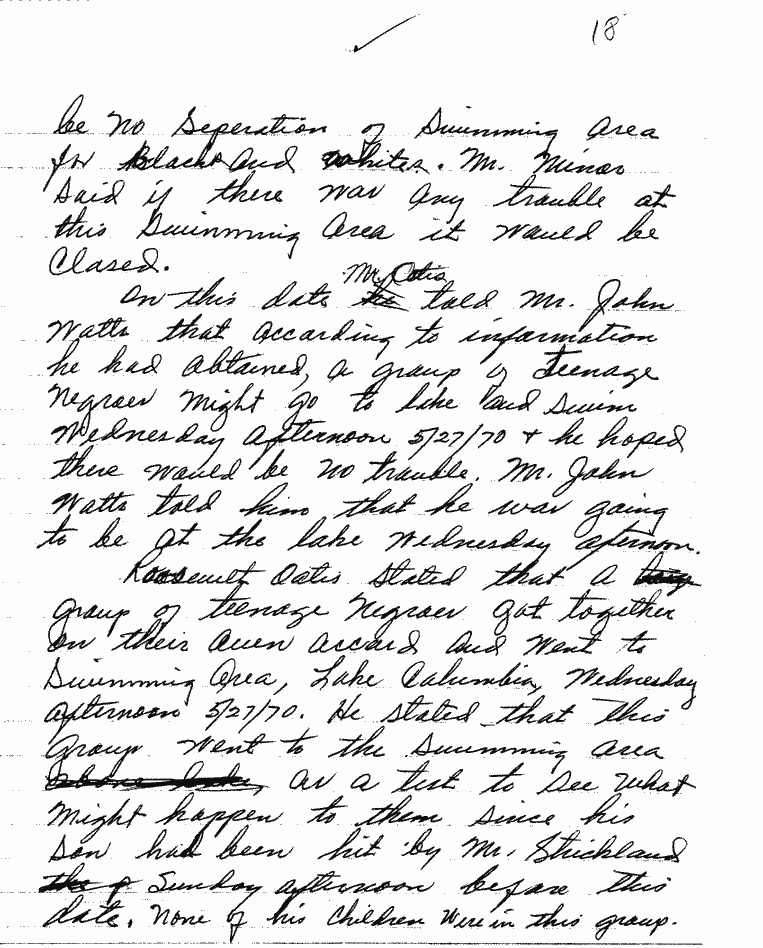 18
be no Seperation of Swimming Area
for Blacks and whites. Mr. Minor
said if there was any trouble at
this Swimming Area it would be
Closed.
Mr. Oatis
On this date he told Mr. John
Watts that according to information
he had obtained, a group of teenage
Negroes might go to lake and swim
Wednesday afternoon 5/27/70 + he hoped
there would be no trouble. Mr. John
Watts told him that he was going
to be at the lake Wednesday afternoon.
Roosevelt Oatis stated that a
group of teenage Negroes got together
on their own accord and went to
Swimming Area, Lake Columbia, Wednesday
afternoon 5/27/70. He stated that this
group went to the swimming area
as a test to see what
might happen to them since his
son had been hit by Mr. Strickland
Sunday afternoon before this
date. None of his children were in this group.